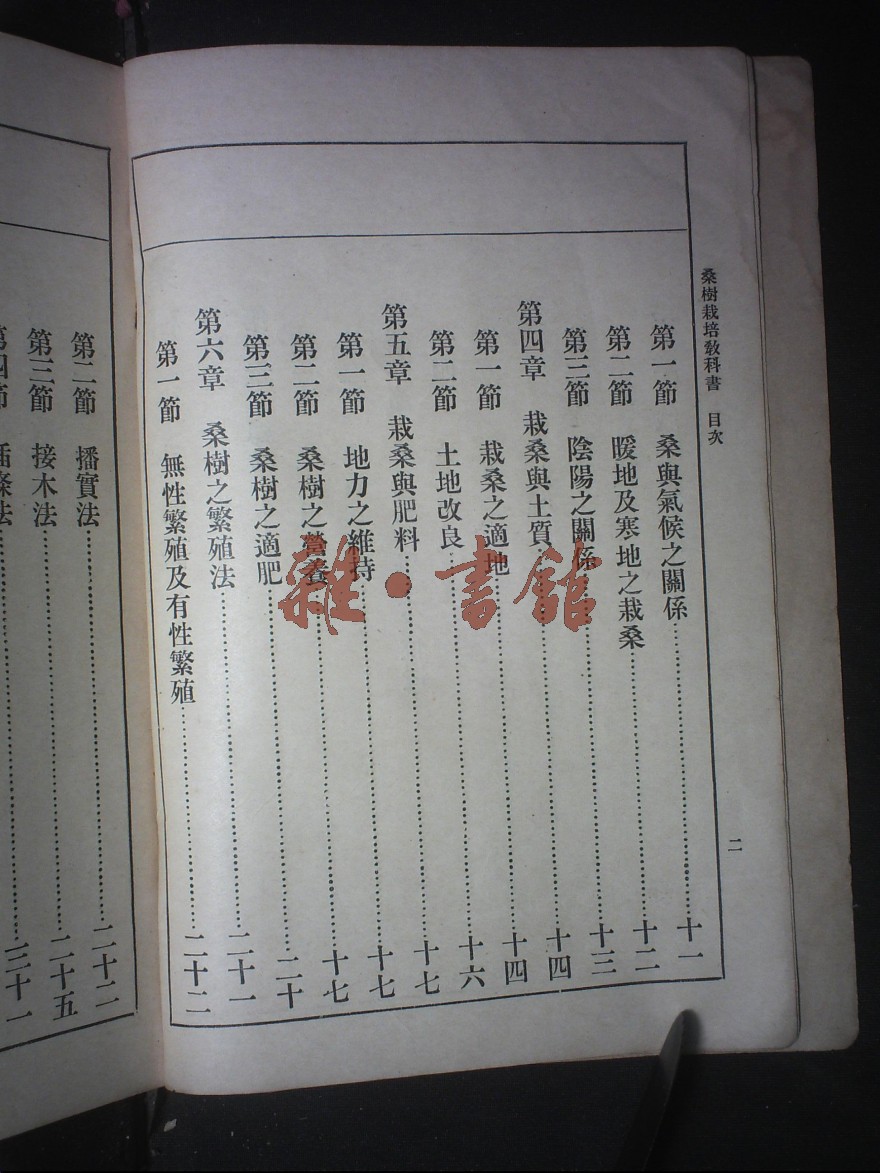 桑樹栽培教科書 目次
二
第一節 桑與氣候之關係……十一
第二節 暖地及寒地之栽桑……十二
第三節 陰陽之關係……十三
第四章 栽桑與土質……十四
第一節 栽桑之適地……十四
第二節 土地改良……十六
第五章 栽桑與肥料……十七
第一節 地力之維持……十七
第二節 桑樹之營養……十七
第三節 桑樹之適肥……二十
第六章 桑樹之繁殖法……二十一
第一節 無性繁殖及有性繁殖……二十二
第二節 播實法……二十二
第三節 接木法……二十五
第四節 插條法……三十一
雜·書館